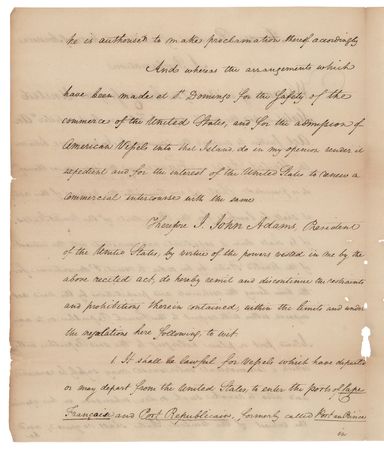 he is authorised to make proclamation thereof accordingly
And whereas the arrangements which
have been made at St. Domingo for the safety of the
commerce of the United States, and for the admission of
American Vessels into that Island, do in my opinion render it
expedient and for the interest of the United States to renew a
commercial intercourse with the same
Therefore I, John Adams, President
of the United States, by virtue of the powers vested in me by the
above recited act, do hereby remit and discontinue the restraints
and prohibitions therein contained, within the limits and under
the regulations here following, to wit.
1. It shall be lawful for Vessels which have departed
or may depart from the United States, to enter the ports of Cape
Française and Port Republicain, formerly called Port-au-Prince
in